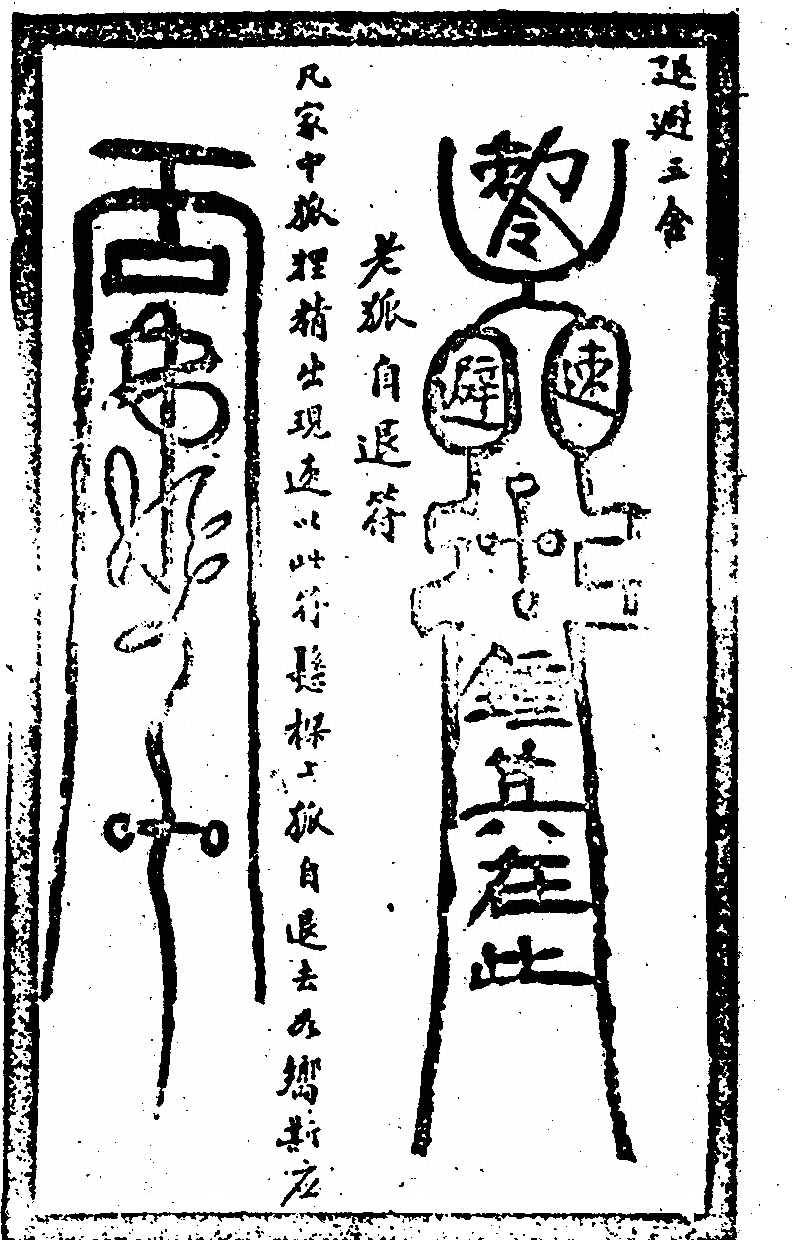 退避三舍
敕令
速
避
在此
老狐自退符
凡家中狐狸精出現速以此符懸樑上狐自退去如嚮斯应